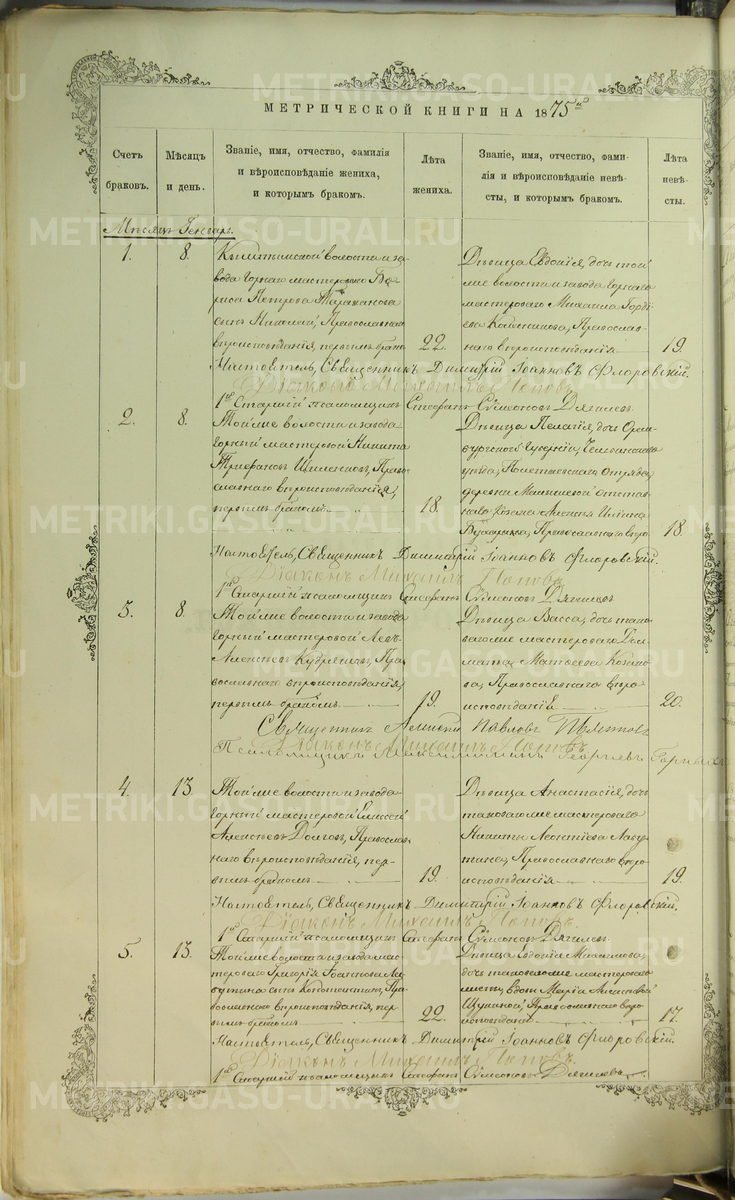 МЕТРИЧЕСКОЙ КНИГИ НА 1875й
Счетъ браковъ.
Мѣсяцъ и день.
Званіе, имя, отчество, фамилія и вѣроисповѣданіе жениха, и которымъ бракомъ.
Лѣта жениха.
Званіе, имя, отчество, фамилія и вѣроисповѣданіе невѣсты, и которымъ бракомъ.
Лѣта невѣсты.
Мѣсяцъ Генварь.
1. 8.
Кыштымской волости и за-
вода горнаго мастероваго Бо-
риса Петрова Тараканова
сынъ Николай, Православнаго
вѣроисповѣданія, первымъ бракомъ
22.
Дѣвица Евдокія, дочь той
же волости и завода горнаго
мастероваго Михаила Горді-
ева, Православ-
наго вѣроисповѣданія
19.
Настоятель, Священникъ Димитрій Іоанновъ Флоровскій.
Діаконъ Михаилъ Поповъ
1й Старшій псаломщикъ Стефанъ Симеоновъ Дягилевъ
2. 8.
Той же волости и завода
горный мастеровой Никита
Трифановъ, Право-
славнаго вѣроисповѣданія,
первымъ бракомъ
18.
Дѣвица Пелагія, дочь Орен-
бургской Губерніи, Челябинскаго
уѣзда, Полетаевскаго Отряда,
деревни отстав-
наго козака
Православнаго вѣро
18.
Настоятель, Священникъ Димитрій Іоанновъ Флоровскій.
Діаконъ Михаилъ Поповъ
1й Старшій псаломщикъ Стефанъ Симеоновъ Дягилевъ
3. 8.
Той же волости и завода
горный мастеровой Левъ
Алексѣевъ, Пра-
вославнаго вѣроисповѣданія,
первымъ бракомъ
19.
Дѣвица Васса, дочь тако-
ваго же мастероваго
Матвѣева
Православнаго вѣро-
исповѣданія
20.
Священникъ Алексій Павловъ
Діаконъ Михаилъ Поповъ
Псаломщикъ Георгіевъ
4. 13.
Той же волости и завода
горный мастеровой Елисей
Алексѣевъ Долговъ, Православ-
наго вѣроисповѣданія, пер-
вымъ бракомъ
19.
Дѣвица Анастасія, дочь
таковаго же мастероваго
Никиты Леонтіева
Православнаго вѣро-
исповѣданія
19.
Настоятель, Священникъ Димитрій Іоанновъ Флоровскій.
Діаконъ Михаилъ Поповъ
1й Старшій псаломщикъ Стефанъ Симеоновъ Дягилевъ
5. 13.
Той же волости и завода мас-
тероваго Григорія Іоаннова
сынъ Константинъ, Пра-
вославнаго вѣроисповѣданія, пер-
вымъ бракомъ
22.
Дѣвица Евдокія Михаилова,
дочь таковаго же мастероваго
Православнаго вѣро
исповѣданія
17.
Настоятель, Священникъ Димитрій Іоанновъ Флоровскій.
Діаконъ Михаилъ Поповъ
1й Старшій псаломщикъ Стефанъ Симеоновъ Дягилевъ
METRIKI.GASO-URAL.RU